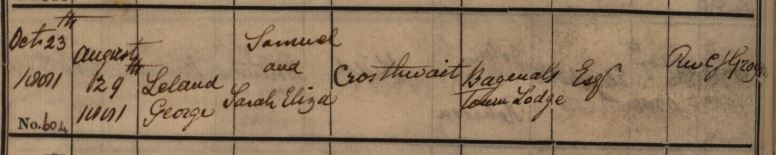 Octr 23th
1881
No. 604
August
12 9th
1881
Leland
George
Samuel
and
Sarah Eliza
Crosthwait
Bagenals
Town Lodge
Esqr
Rev C J Grogan